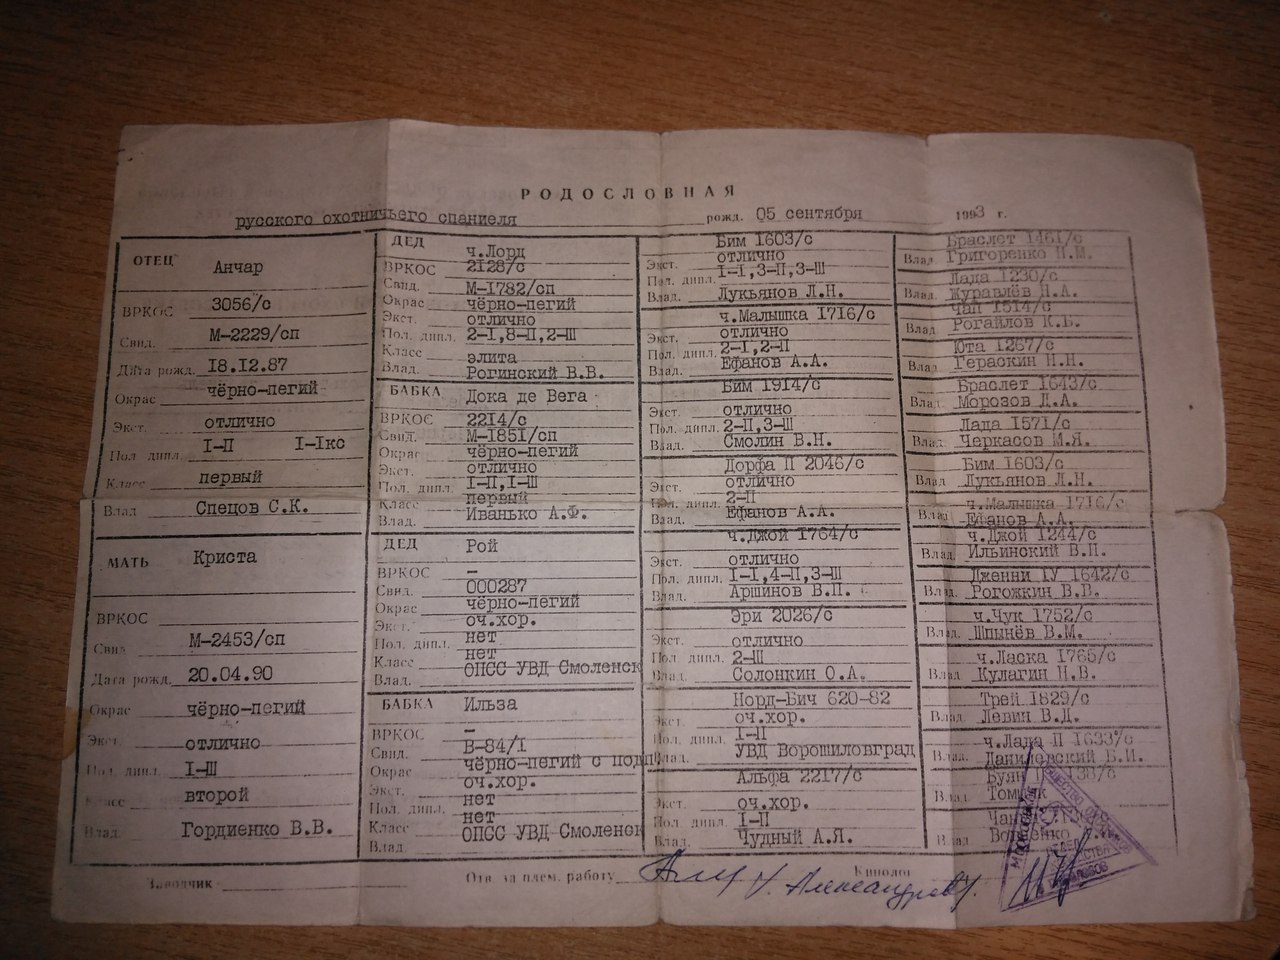 РОДОСЛОВНАЯ
русского охотничьего спаниеля рожд. 05 сентября 1993 г.
ОТЕЦ Анчар
ВРКОС 3056/с
Свид. М-2229/сп
Дата рожд. 18.12.87
Окрас чёрно-пегий
Экст. отлично
Пол. дипл. I-П I-Iкс
Класс первый
Влад Спецов С.К.
МАТЬ Криста
ВРКОС
Свид М-2453/сп
Дата рожд. 20.04.90
Окрас чёрно-пегий
Экст. отлично
Пол. дипл. I-Ш
Класс второй
Влад. Гордиенко В.В.
ДЕД ч.Лорд
ВРКОС 2128/с
Свид. М-1782/сп
Окрас чёрно-пегий
Экст. отлично
Пол. дипл. 2-I,8-П,2-Ш
Класс элита
Влад. Рогинский В.В.
БАБКА Дока де Вега
ВРКОС 2214/с
Свид. М-1851/сп
Окрас чёрно-пегий
Экст. отлично
Пол. дипл. I-П,I-Ш
Класс первый
Влад. Иванько А.Ф.
ДЕД Рой
ВРКОС –
Свид. 000287
Окрас чёрно-пегий
Экст. оч.хор.
Пол. дипл. нет
Класс нет
Влад. ОПСС УВД Смоленск
БАБКА Ильза
ВРКОС –
Свид. В-84/I
Окрас чёрно-пегий с подп
Экст. оч.хор.
Пол. дипл. нет
Класс нет
Влад. ОПСС УВД Смоленск
Бим 1603/с
Экст. отлично
Пол. дипл. I-I,3-П,3-Ш
Влад. Лукьянов Л.Н.
ч.Малышка 1716/с
Экст. отлично
Пол. дипл. 2-I,2-П
Влад. Ефанов А.А.
Бим 1914/с
Экст. отлично
Пол. дипл. 2-П,3-Ш
Влад. Смолин В.Н.
Дорфа П 2046/с
Экст. отлично
Пол. дипл. 2-П
Влад. Ефанов А.А.
ч.Джой 1764/с
Экст. отлично
Пол. дипл. I-I,4-П,3-Ш
Влад. Аршинов В.П.
Эри 2026/с
Экст. отлично
Пол дипл. 2-Ш
Влад. Солонкин О.А.
Норд-Бич 620-82
Экст. оч.хор.
Пол. дипл. I-П
Влад. УВД Ворошиловград
Альфа 2217/с
Экст. оч.хор.
Пол. дипл. I-П
Влад. Чудный А.Я.
Браслет 1461/с
Влад. Григоренко Н.М.
Лада 1230/с
Влад. Журавлёв Н.А.
Чап 1514/с
Влад. Рогайлов К.Б.
Юта 1267/с
Влад. Гераскин Н.Н.
Браслет 1643/с
Влад. Морозов Д.А.
Лада 1571/с
Влад. Черкасов М.Я.
Бим 1603/с
Влад Лукьянов Л.Н.
ч.Малышка 1716/с
Влад. Ефанов А.А.
ч.Джой 1244/с
Влад. Ильинский В.П.
Дженни IУ 1642/с
Влад. Рогожкин В.В.
ч.Чук 1752/с
Влад. Шпынёв В.М.
ч.Ласка 1765/с
Влад. Кулагин Н.В.
Трей 1829/с
Влад. Левин В.Д.
ч.Лада П 1633/с
Влад. Данилевский В.И.
Буян
Влад
Влад
Заводчик Отв. за плем. работу Кинолог
Александров